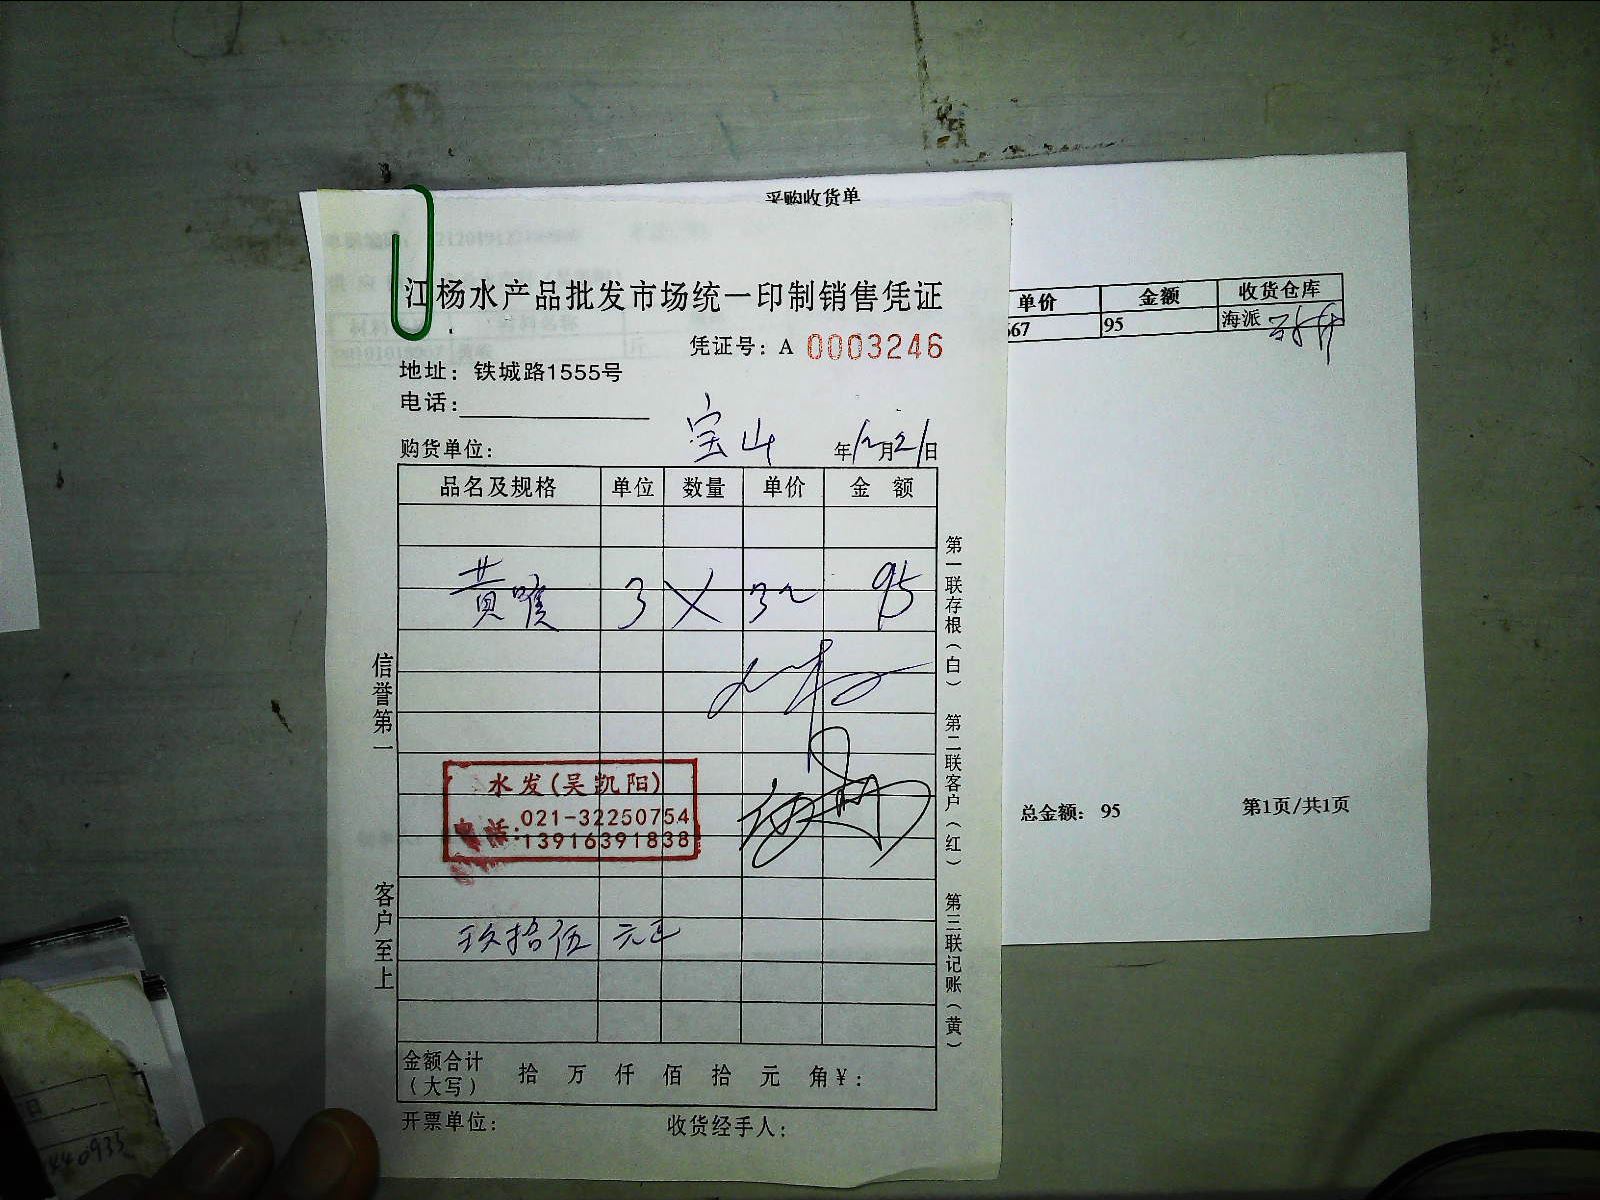 采购收货单
江杨水产品批发市场统一印制销售凭证
凭证号：A 0003246
地址：铁城路1555号
电话：
购货单位： 宝山 年12月21日
品名及规格 单位 数量 单价 金 额
黄喉 3 X 32 95
水发(吴凯阳)
电话：021-32250754
13916391838
玖拾伍元正
金额合计（大写） 拾 万 仟 佰 拾 元 角￥：
开票单位： 收货经手人：
信誉第一
客户至上
第一联存根（白） 第二联客户（红） 第三联记账（黄）
单价 金额 收货仓库
667 95 海派
总金额： 95 第1页/共1页
440935